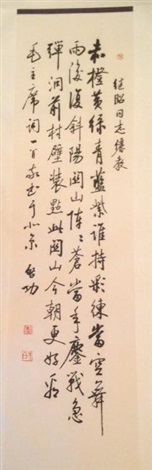 同志
赤橙黄綠青藍紫誰持彩練當空舞
雨後復斜陽関山陣〻蒼當年鏖戰急
彈洞前村壁裝點此関山今朝更好看
毛主席詞一首 書于北京 啓功